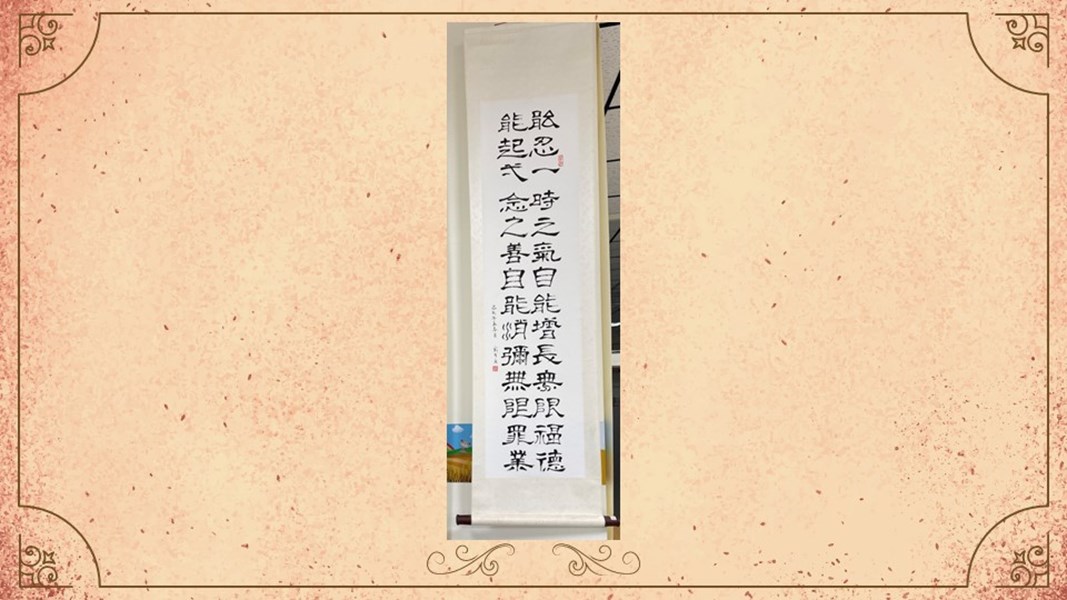 能忍一時之氣自能增長無限福德
能起弌念之善自能消彌無限罪業